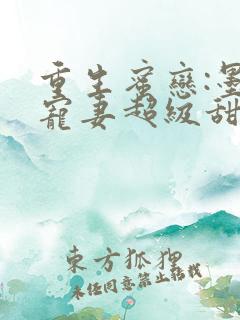 重生蜜戀:墨
寵妻超級甜
東方狐狸
未经同意禁止转载